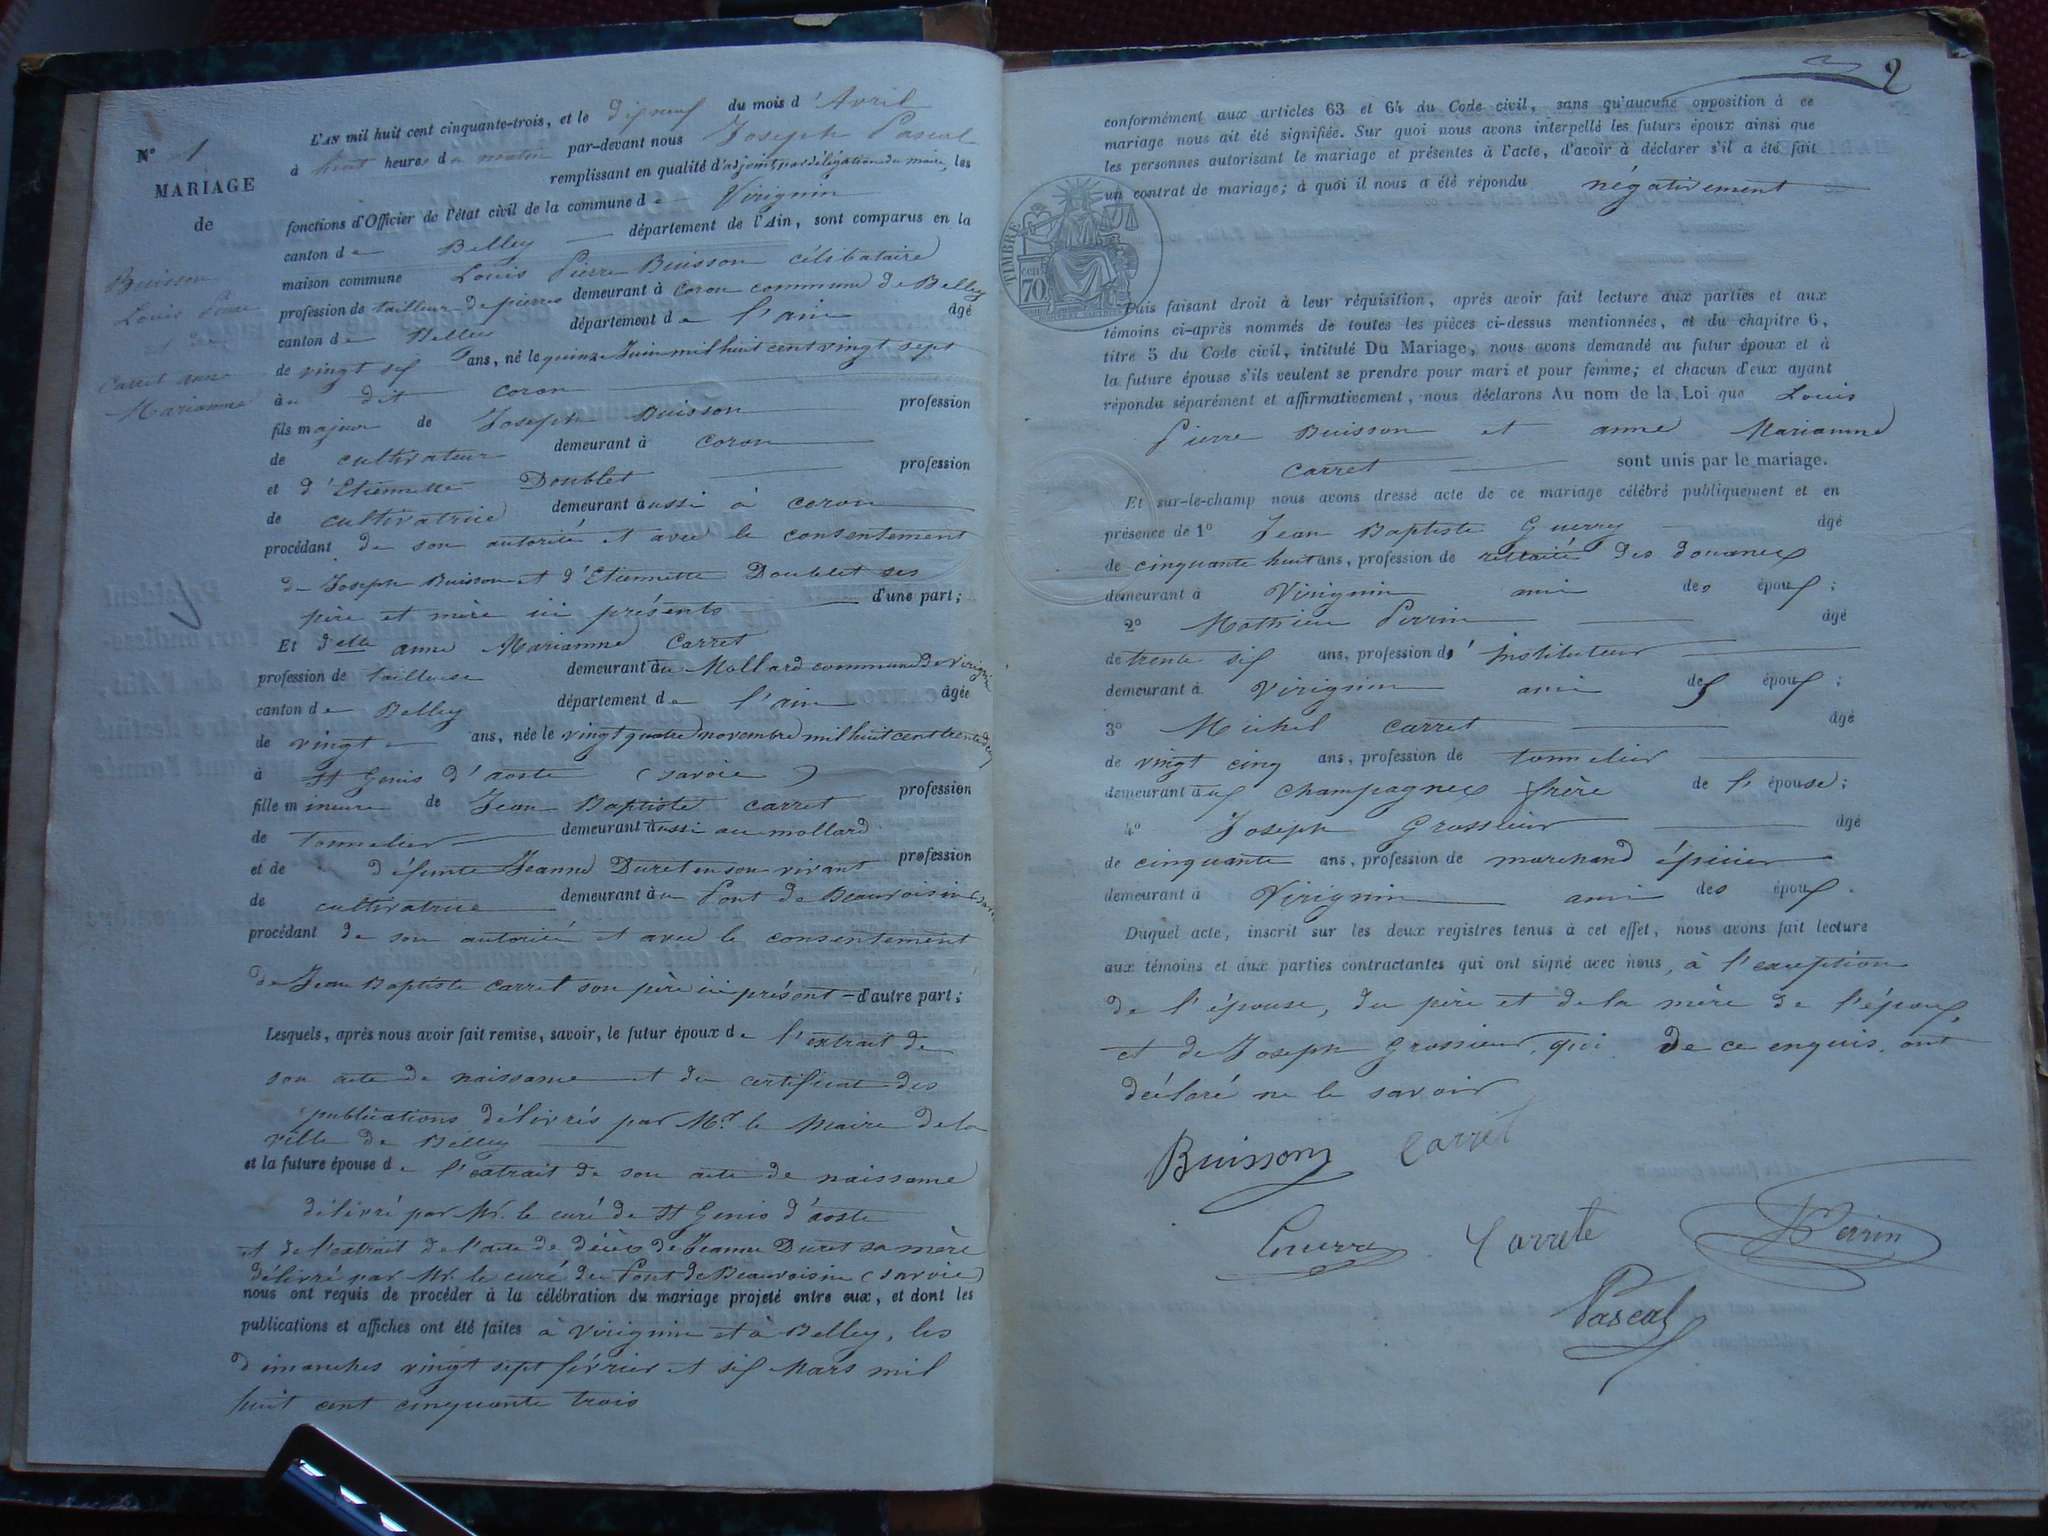 N° 1
MARIAGE
de
Buisson
Louis Pierre
et de
Carret anne
Marianne
L'AN mil huit cent cinquante-trois, et le dixneuf du mois d'Avril
à huit heures du matin par-devant nous Joseph Pascal
remplissant en qualité d'adjoint, par délégation du maire, les
fonctions d'Officier de l'état civil de la commune de Virignin
canton de Belley département de l'Ain, sont comparus en la
maison commune Louis Pierre Buisson célibataire
profession de tailleur de pierres demeurant à Coron commune de Belley
canton de Belley département de l'ain âgé
de vingt six ans, né le quinze Juin mil huit cent vingt sept
au dit coron
fils majeur de Joseph Buisson profession
de cultivateur demeurant à coron
et d'Etiennette Doublet profession
de cultivatrice demeurant aussi à coron
procédant de son autorité et avec le consentement
de Joseph Buisson et d'Etiennette Doublet ses
père et mère ici présents d'une part;
Et delle anne Marianne Carret
profession de tailleuse demeurant au Mollard commune de Virignin
canton de Belley département de l'ain âgée
de vingt ans, née le vingt quatre novembre mil huit cent trente deux
à St Genis d'aoste (savoie)
fille mineure de Jean Baptiste carret profession
de tonnelier demeurant aussi au mollard
et de défunte Jeanne Duret en son vivant profession
de cultivatrice demeurant au Pont de Beauvoisin (Savoie
procédant de son autorité et avec le consentement
de Jean Baptiste carret son père ici présent d'autre part;
Lesquels, après nous avoir fait remise, savoir, le futur époux de l'extrait de
son acte de naissance et du certificat des
publications délivrés par Mr. le Maire de la
ville de Belley
et la future épouse de l'extrait de son acte de naissance
délivré par Mr. le curé de St Genis d'aoste
et de l'extrait de l'acte de décès de Jeanne Duret sa mère
délivré par Mr. le curé du Pont de Beauvoisin (savoie)
nous ont requis de procéder à la célébration du mariage projeté entre eux, et dont les
publications et affiches ont été faites à Virignin et à Belley, les
dimanches vingt sept février et six Mars mil
huit cent cinquante trois
2
conformément aux articles 63 et 64 du Code civil, sans qu'aucune opposition à ce
mariage nous ait été signifiée. Sur quoi nous avons interpellé les futurs époux ainsi que
les personnes autorisant le mariage et présentes à l'acte, d'avoir à déclarer s'il a été fait
un contrat de mariage; à quoi il nous a été répondu négativement
TIMBRE
70 cen
Puis faisant droit à leur réquisition, après avoir fait lecture aux parties et aux
témoins ci-après nommés de toutes les pièces ci-dessus mentionnées, et du chapitre 6,
titre 5 du Code civil, intitulé Du Mariage, nous avons demandé au futur époux et à
la future épouse s'ils veulent se prendre pour mari et pour femme; et chacun d'eux ayant
répondu séparément et affirmativement, nous déclarons Au nom de la Loi que Louis
Pierre Buisson et anne Marianne
carret sont unis par le mariage.
Et sur-le-champ nous avons dressé acte de ce mariage célébré publiquement et en
présence de 1° Jean Baptiste Guerry âgé
de cinquante huit ans, profession de retraité des douanes
demeurant à Virignin ami des époux;
2° Mathieu Perrin âgé
de trente six ans, profession d'instituteur
demeurant à Virignin ami des époux;
3° Michel carret âgé
de vingt cinq ans, profession de tonnelier
demeurant aux champagnes frère de l'épouse;
4° Joseph Grossieur âgé
de cinquante ans, profession de marchand épicier
demeurant à Virignin ami des époux.
Duquel acte, inscrit sur les deux registres tenus à cet effet, nous avons fait lecture
aux témoins et aux parties contractantes qui ont signé avec nous, à l'exception
de l'épouse, du père et de la mère de l'époux,
et de Joseph Grossieur, qui de ce enquis, ont
déclaré ne le savoir
Buisson Carret
Guerry Carrete Perrin
Pascal